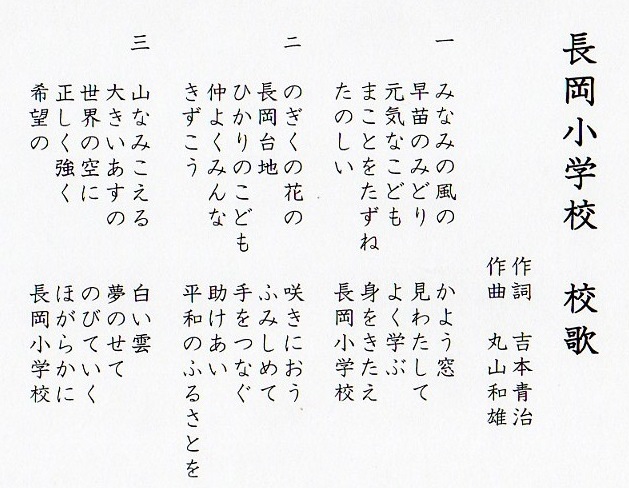 長岡小学校　校歌
作詞　吉本青治
作曲　丸山和雄
一　みなみの風の　かよう窓
早苗のみどり　見わたして
元気なこども　よく学ぶ
まことをたずね　身をきたえ
たのしい　長岡小学校
二　のぎくの花の　咲きにおう
長岡台地　ふみしめて
ひかりのこども　手をつなぐ
仲よくみんな　助けあい
きずこう　平和のふるさとを
三　山なみこえる　白い雲
大きいあすの　夢のせて
世界の空に　のびていく
正しく強く　ほがらかに
希望の　長岡小学校